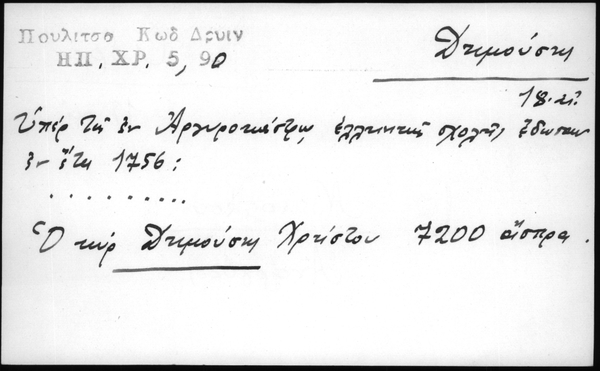 Πουλιτσα Κωδ Δρυιν
ΗΠ. ΧΡ. 5, 90
Δημούσης
18. αἰ.
Ὑπέρ τῆς ἐν Ἀργυροκάστρῳ ἑλληνικῆς σχολῆς ἔδωσαν
ἐν ἔτει 1756:
. . . . . . . . . .
Ὁ κύρ Δημούσης Χρήστου 7200 ἄσπρα.